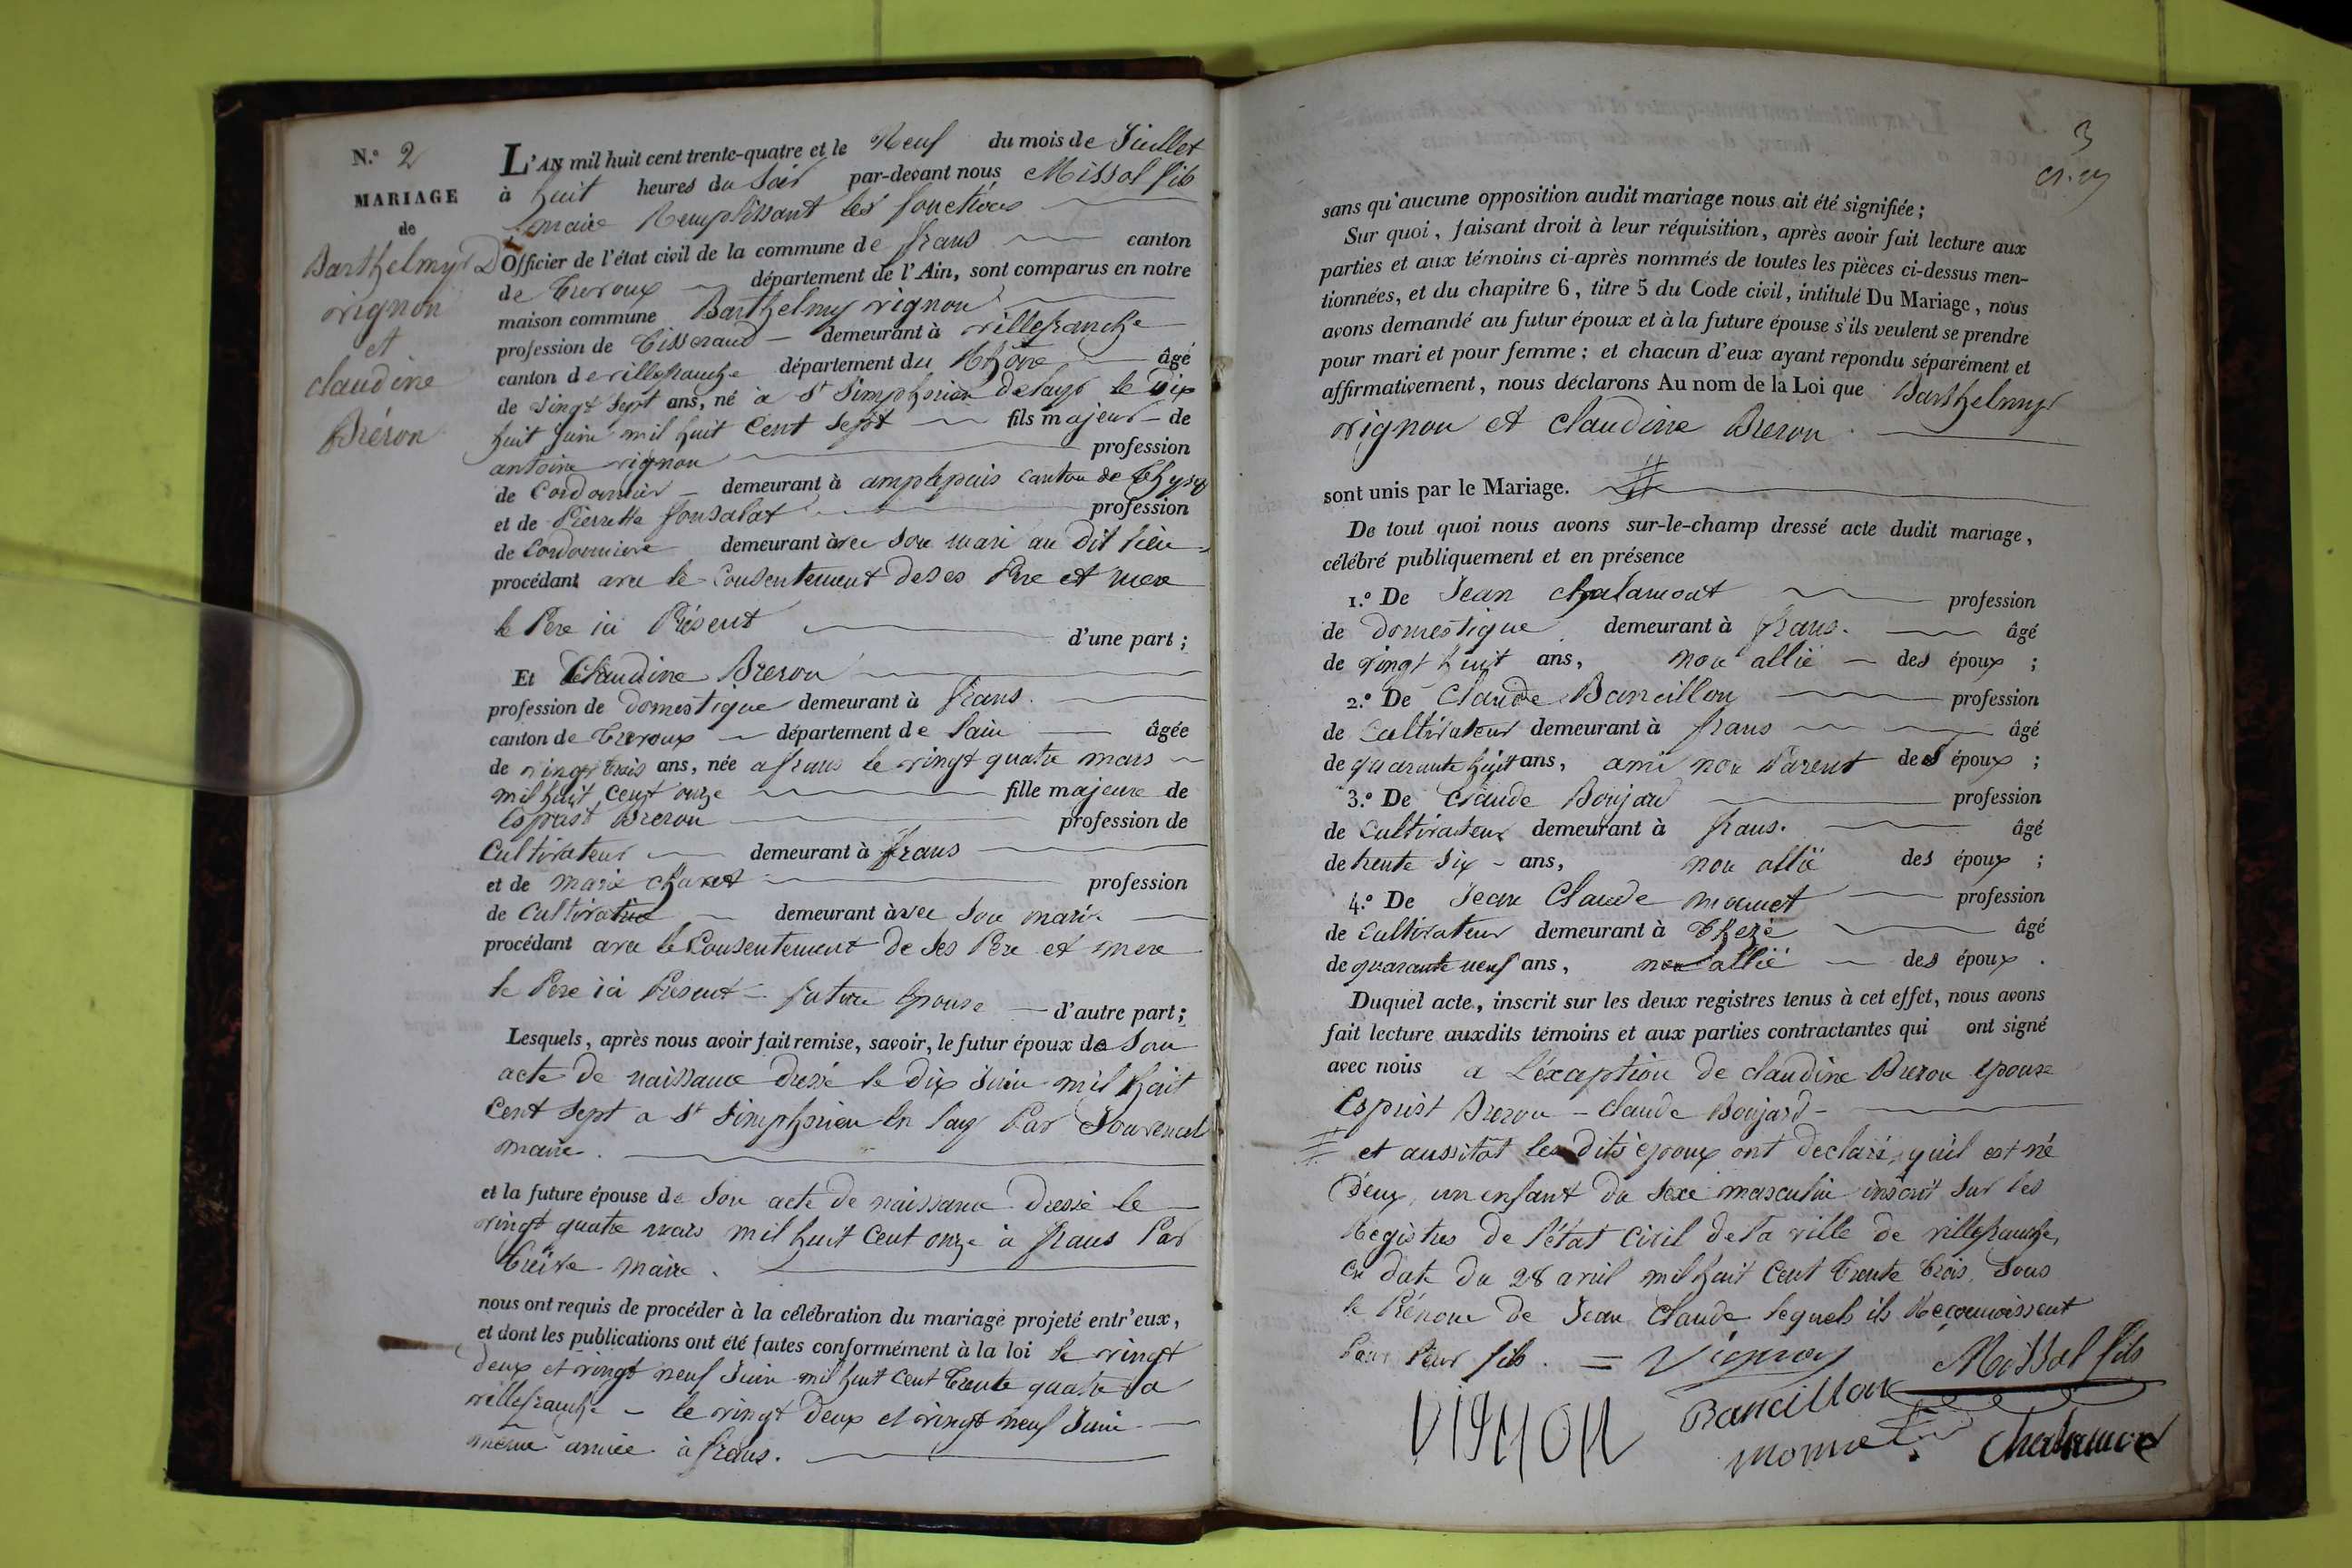 N.° 2
MARIAGE
de
Barthelmy
vignon
et
claudine
Breron
L'AN mil huit cent trente-quatre et le Neuf du mois de Juillet
à huit heures du Soir par-devant nous Missol fils
maire Remplissant les fonctions
Officier de l'état civil de la commune de frans canton
de Trevoux département de l'Ain, sont comparus en notre
maison commune Barthelmy vignon
profession de Tisserand demeurant à villefranche
canton de villefranche département du Rhône âgé
de vingt Sept ans, né à St Simphorien de Lay le Dix
huit Juin mil huit Cent Sept fils majeur de
antoine vignon profession
de Cordonnier demeurant à amplepuis canton de Thysy
et de Pierrette fonsalat profession
de Cordonniere demeurant avec Son mari au Dit lieu
procédant avec le Consentement de ses Pere et mere
le Pere ici Présent d'une part ;
Et Claudine Breron
profession de domestique demeurant à frans
canton de Trevoux département de Lain âgée
de vingt trois ans, née a frans le vingt quatre mars
mil huit Cent onze fille majeure de
Esprist Breron profession de
Cultivateur demeurant à frans
et de marie profession
de Cultivatrice demeurant avec Son mari
procédant avec le Consentement de Ses Pere et mere
le Pere ici Présent future Epouse d'autre part ;
Lesquels, après nous avoir fait remise, savoir, le futur époux de Son
acte de naissance dressé le dix Juin mil huit
Cent Sept a St Simphorien en Lay Par
maire.
et la future épouse de Son acte de naissance dressé le
vingt quatre mars mil huit Cent onze à frans Par
maire.
nous ont requis de procéder à la célébration du mariage projeté entr'eux,
et dont les publications ont été faites conformément à la loi le vingt
deux et vingt neuf Juin mil huit Cent trente quatre a
villefranche – le vingt Deux et vingt neuf Juin
même année à frans.
3
sans qu'aucune opposition audit mariage nous ait été signifiée ;
Sur quoi, faisant droit à leur réquisition, après avoir fait lecture aux
parties et aux témoins ci-après nommés de toutes les pièces ci-dessus men-
tionnées, et du chapitre 6, titre 5 du Code civil, intitulé Du Mariage, nous
avons demandé au futur époux et à la future épouse s'ils veulent se prendre
pour mari et pour femme ; et chacun d'eux ayant répondu séparément et
affirmativement, nous déclarons Au nom de la Loi que Barthelmy
vignon et Claudine Breron
sont unis par le Mariage. #
De tout quoi nous avons sur-le-champ dressé acte dudit mariage,
célébré publiquement et en présence
1.° De Jean Chalamont profession
de Domestique demeurant à frans. âgé
de vingt huit ans, non allié des époux ;
2.° De Claude Bancillon profession
de Cultivateur demeurant à frans âgé
de quarante huit ans, ami non Parent des époux ;
3.° De Claude Boujard profession
de Cultivateur demeurant à frans. âgé
de trente Six ans, non allié des époux ;
4.° De Jean Claude profession
de Cultivateur demeurant à Thezé âgé
de quarante neuf ans, non allié des époux .
Duquel acte, inscrit sur les deux registres tenus à cet effet, nous avons
fait lecture auxdits témoins et aux parties contractantes qui ont signé
avec nous a L'exception de Claudine Breron épouse
Esprist Breron – Claude Boujard –
# et aussitôt les Dits époux ont declaré, quil est né
D'eux, un enfant du Sexe masculin inscrit Sur les
Registres de l'état Civil de la ville de villefranche,
en date du 28 avril mil huit Cent trente trois, Sous
le Prénom de Jean Claude lequel ils Reconnoissent
Pour leur fils. = Vignon Missol fils
vignon Bancillon
monnet Chalamon